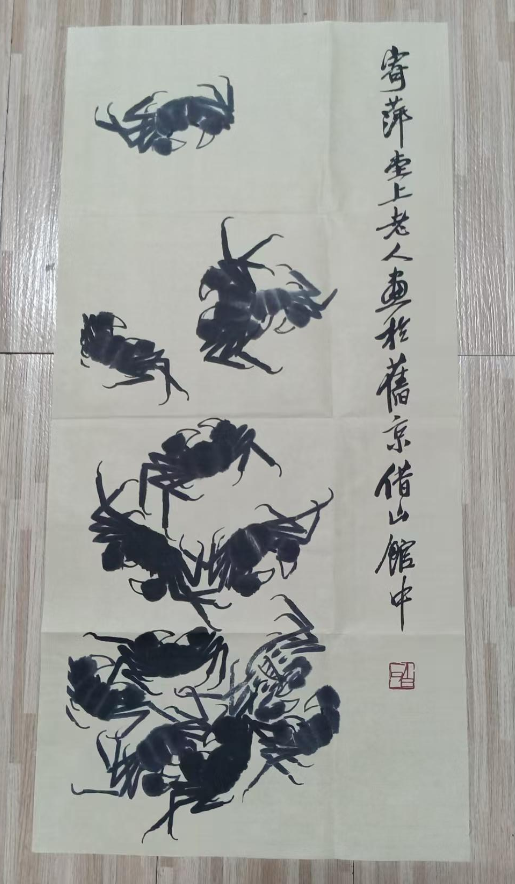 寄萍堂上老人画於舊京借山館中